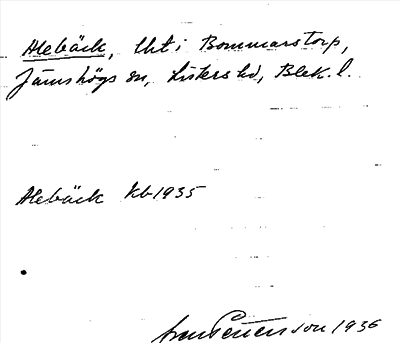 Alebäck, lht i Bommarstorp,
Jämshögs sn, Listers hd, Blek. l.
Alebäck kb 1935
Pettersson 1936